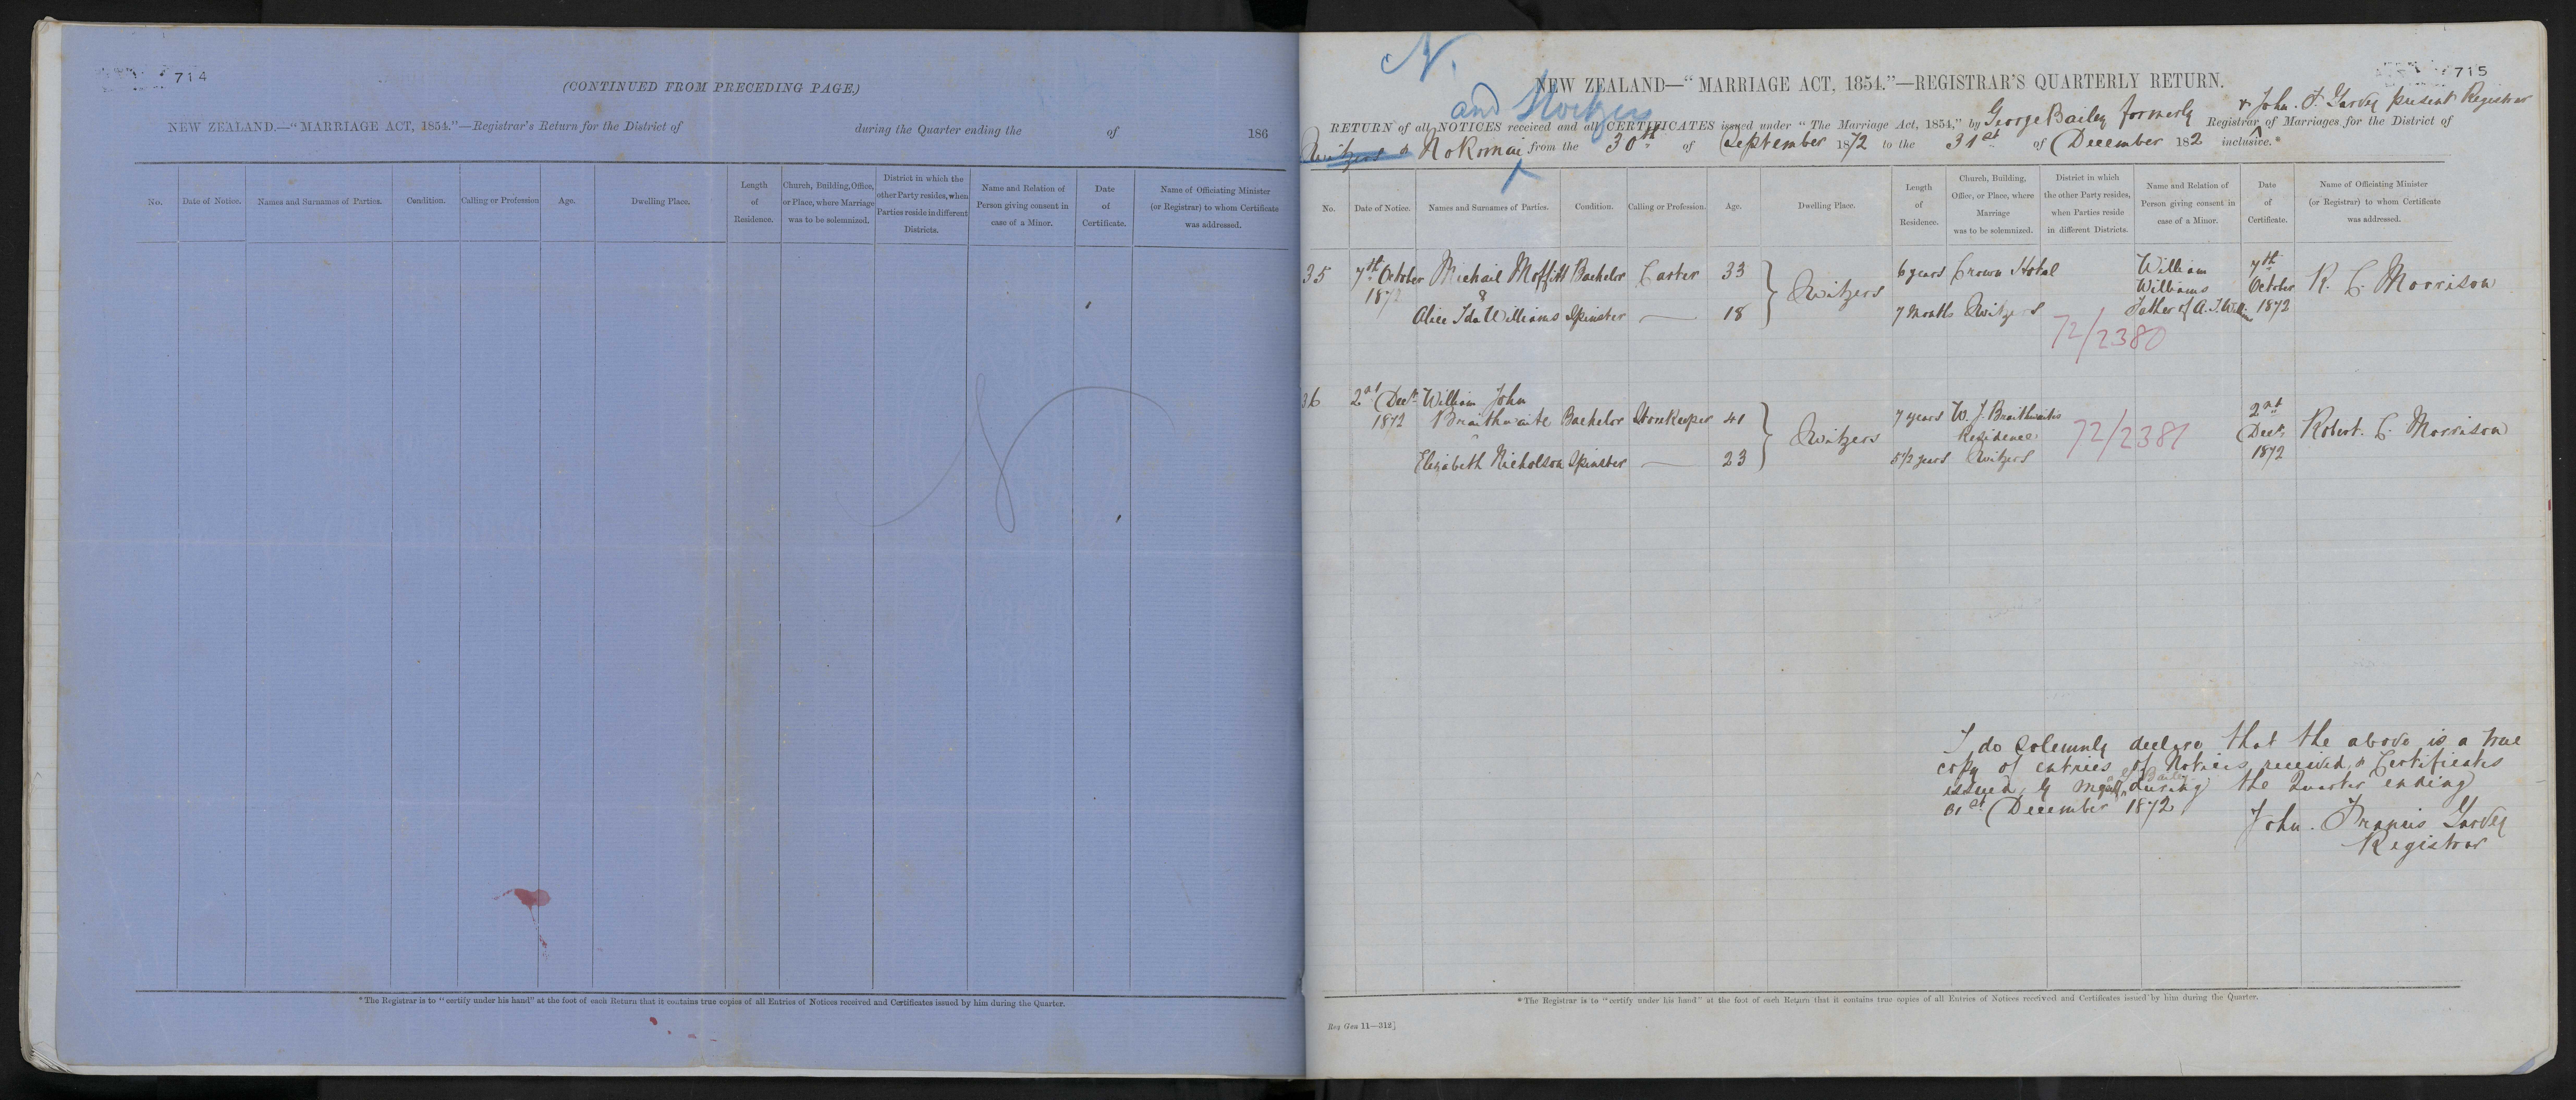 714
(CONTINUED FROM PRECEDING PAGE.)
NEW ZEALAND.—"MARRIAGE ACT, 1854."—Registrar's Return for the District of during the Quarter ending the of 186
No. Date of Notice. Names and Surnames of Parties. Condition. Calling or Profession Age. Dwelling Place. Length of Residence. Church, Building, Office, or Place, where Marriage was to be solemnized. District in which the other Party resides, when Parties reside in different Districts. Name and Relation of Person giving consent in case of a Minor. Date of Certificate. Name of Officiating Minister (or Registrar) to whom Certificate was addressed.
*The Registrar is to "certify under his hand" at the foot of each Return that it contains true copies of all Entries of Notices received and Certificates issued by him during the Quarter.
N.
715
NEW ZEALAND—"MARRIAGE ACT, 1854."—REGISTRAR'S QUARTERLY RETURN.
and
& John. F. Garvey present Registrar
RETURN of all NOTICES received and all CERTIFICATES issued under "The Marriage Act, 1854," by George Bailey formerly Registrar of Marriages for the District of
Switzers & Nokomai from the 30th of September 1872 to the 31st of December 1872 inclusive.*
No. Date of Notice. Names and Surnames of Parties. Condition. Calling or Profession. Age. Dwelling Place. Length of Residence. Church, Building, Office, or Place, where Marriage was to be solemnized. District in which the other Party resides, when Parties reside in different Districts. Name and Relation of Person giving consent in case of a Minor. Date of Certificate. Name of Officiating Minister (or Registrar) to whom Certificate was addressed.
35 7th October Michail Moffitt Bachelor Carter 33 6 years Crown Hotel William 7th
1872 & Switzers Williams October R. C. Morrison
Alice Ida Williams Spinster — 18 7 Months Switzers Father of A. I. Williams 1872
72/2380
36 2nd Decr William John
1872 Braithwaite Bachelor Storekeeper 41 7 years W. J. Braithwaites 2nd
Switzers Residence 72/2381 Decr Robert. C. Morrison
Elizabeth Nicholson Spinster — 23 5½ years Switzers 1872
I do Solemnly declare that the above is a true
copy of entries of Notices received & Certificates
issued by Myself & G Bailey during the Quarter ending
31st December 1872
John. Francis Garvey
Registrar
*The Registrar is to "certify under his hand" at the foot of each Return that it contains true copies of all Entries of Notices received and Certificates issued by him during the Quarter.
Reg Gen 11—312]